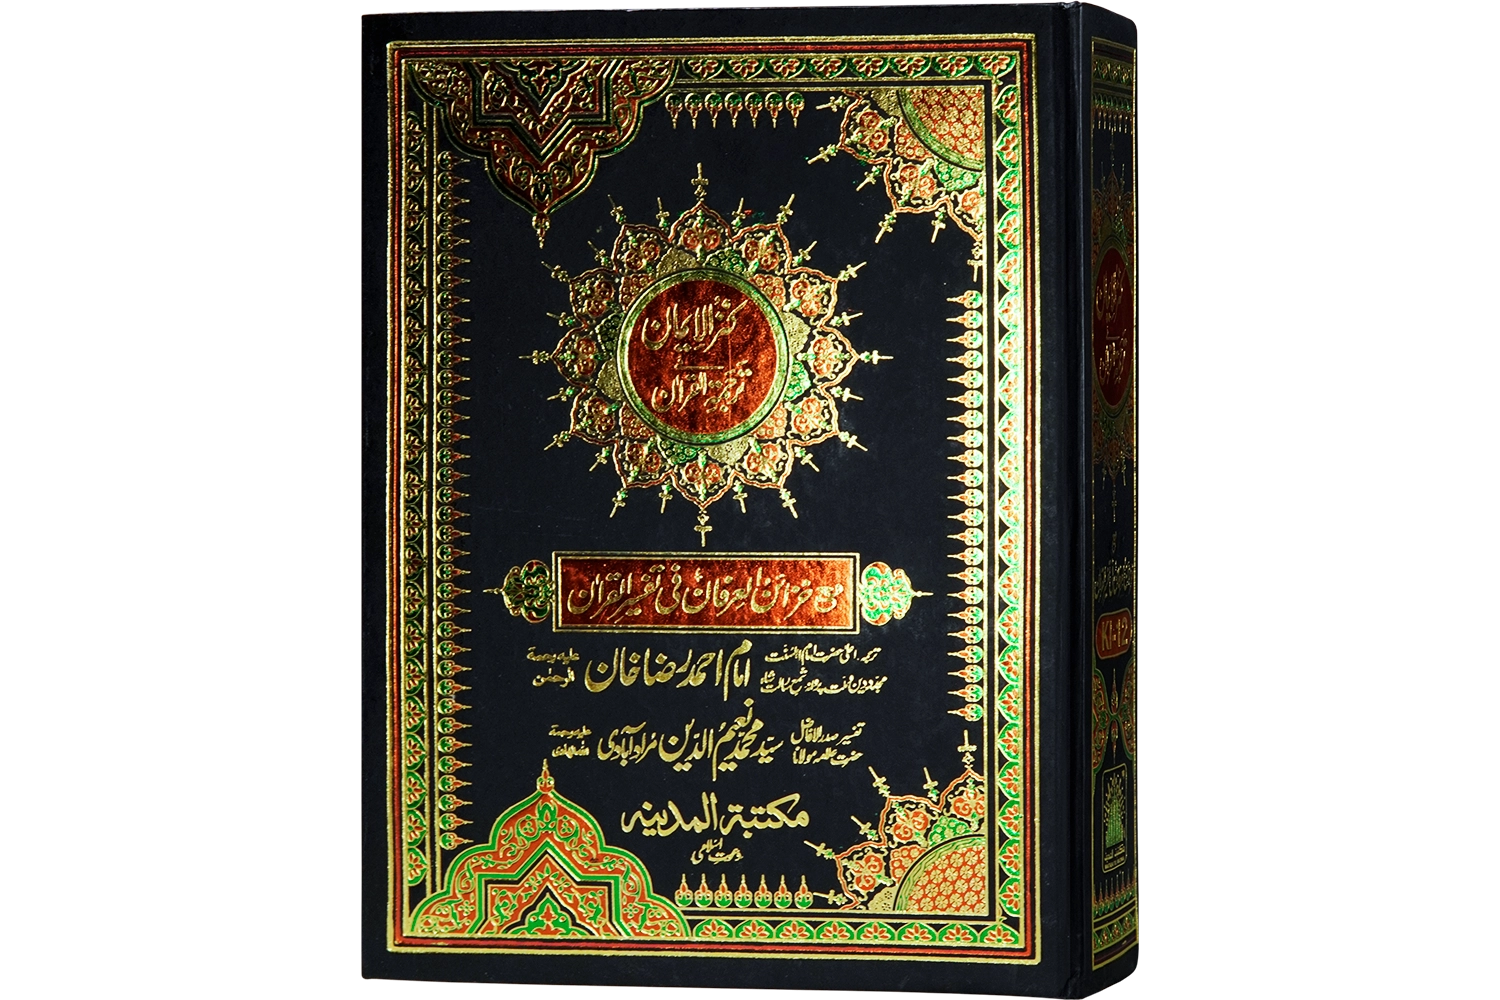 کنز الایمان
ترجمۃ القرآن
مع خزائن العرفان فی تفسیر القرآن
ترجمہ اعلیٰ حضرت امام اہلسنت
مجدد دین و ملت پروانہ شمع رسالت شاہ
امام احمد رضا خان علیہ رحمۃ الرحمٰن
تفسیر صدر الافاضل
حضرت علامہ مولانا
سید محمد نعیم الدین مراد آبادی
مکتبۃ المدینہ
دعوت اسلامی
KI-12